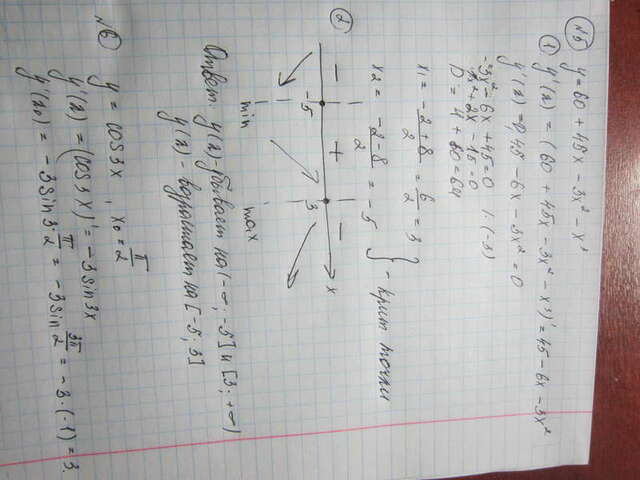 №5 y = 60 + 45x - 3x² - x³
① y'(x) = (60 + 45x - 3x² - x³)' = 45 - 6x - 3x²
y'(x) = 0, 45 - 6x - 3x² = 0
-3x² - 6x + 45 = 0 | · (-3)
x² + 2x - 15 = 0
D = 4 + 60 = 64
x₁ = -2+8/2 = 6/2 = 3 } - крит точки
x₂ = -2-8/2 = -5
② - -5 + 3 - x
min max
Ответ: y(x) - убывает на (-∞; -5] и [3; +∞)
y(x) - возрастает на [-5; 3]
№6 y = cos3x, x₀ = π/2
y'(x) = (cos3x)' = -3sin3x
y'(x₀) = -3sin3 π/2 = -3sin 3π/2 = -3·(-1) = 3.